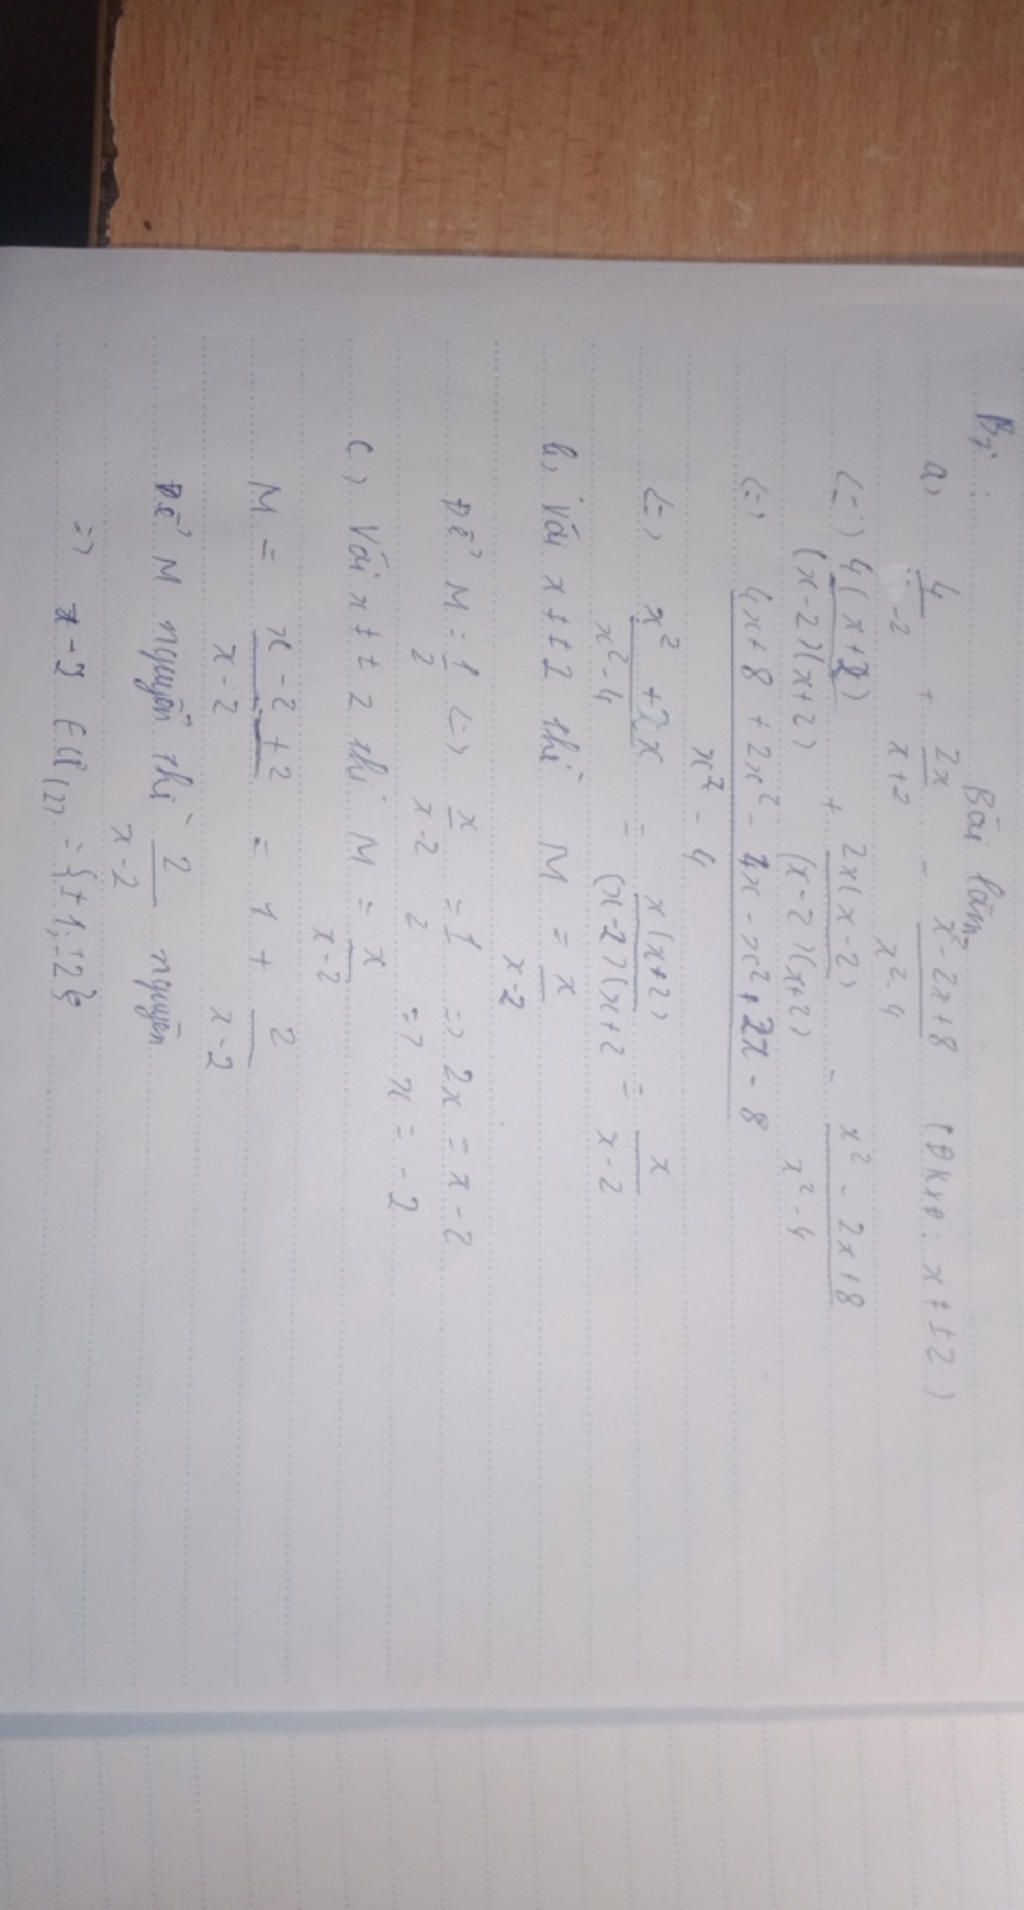 Bài làm
a) 4/-2 + 2x/x+2 - x²-2x+8/x²-4 (ĐKXĐ: x ≠ ±2)
(=) 4(x+2)/(x-2)(x+2) + 2x(x-2)/(x-2)(x+2) - x²-2x+8/x²-4
(=) 4x+8+2x²-4x-x²+2x-8/x²-4
(=) x²+2x/x²-4 = x(x+2)/(x-2)(x+2 = x/x-2
b, Với x ≠ ±2 thì M = x/x-2
Để M = 1/2 (=) x/x-2 = 1/2 => 2x = x-2
=> x = -2
c) Với x ≠ ± 2 thì M = x/x-2
M = x-2+2/x-2 = 1 + 2/x-2
Để M nguyên thì 2/x-2 nguyên
=> x-2 ∈ Ư(2) = {±1; ±2}